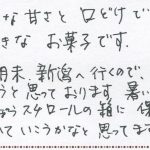 な甘さと 口どけで
きな お菓子です.
月末、新潟へ行くので、
うと思っております. 暑い
ぽうスチロールの箱に 保
ていこうかなと思ってます